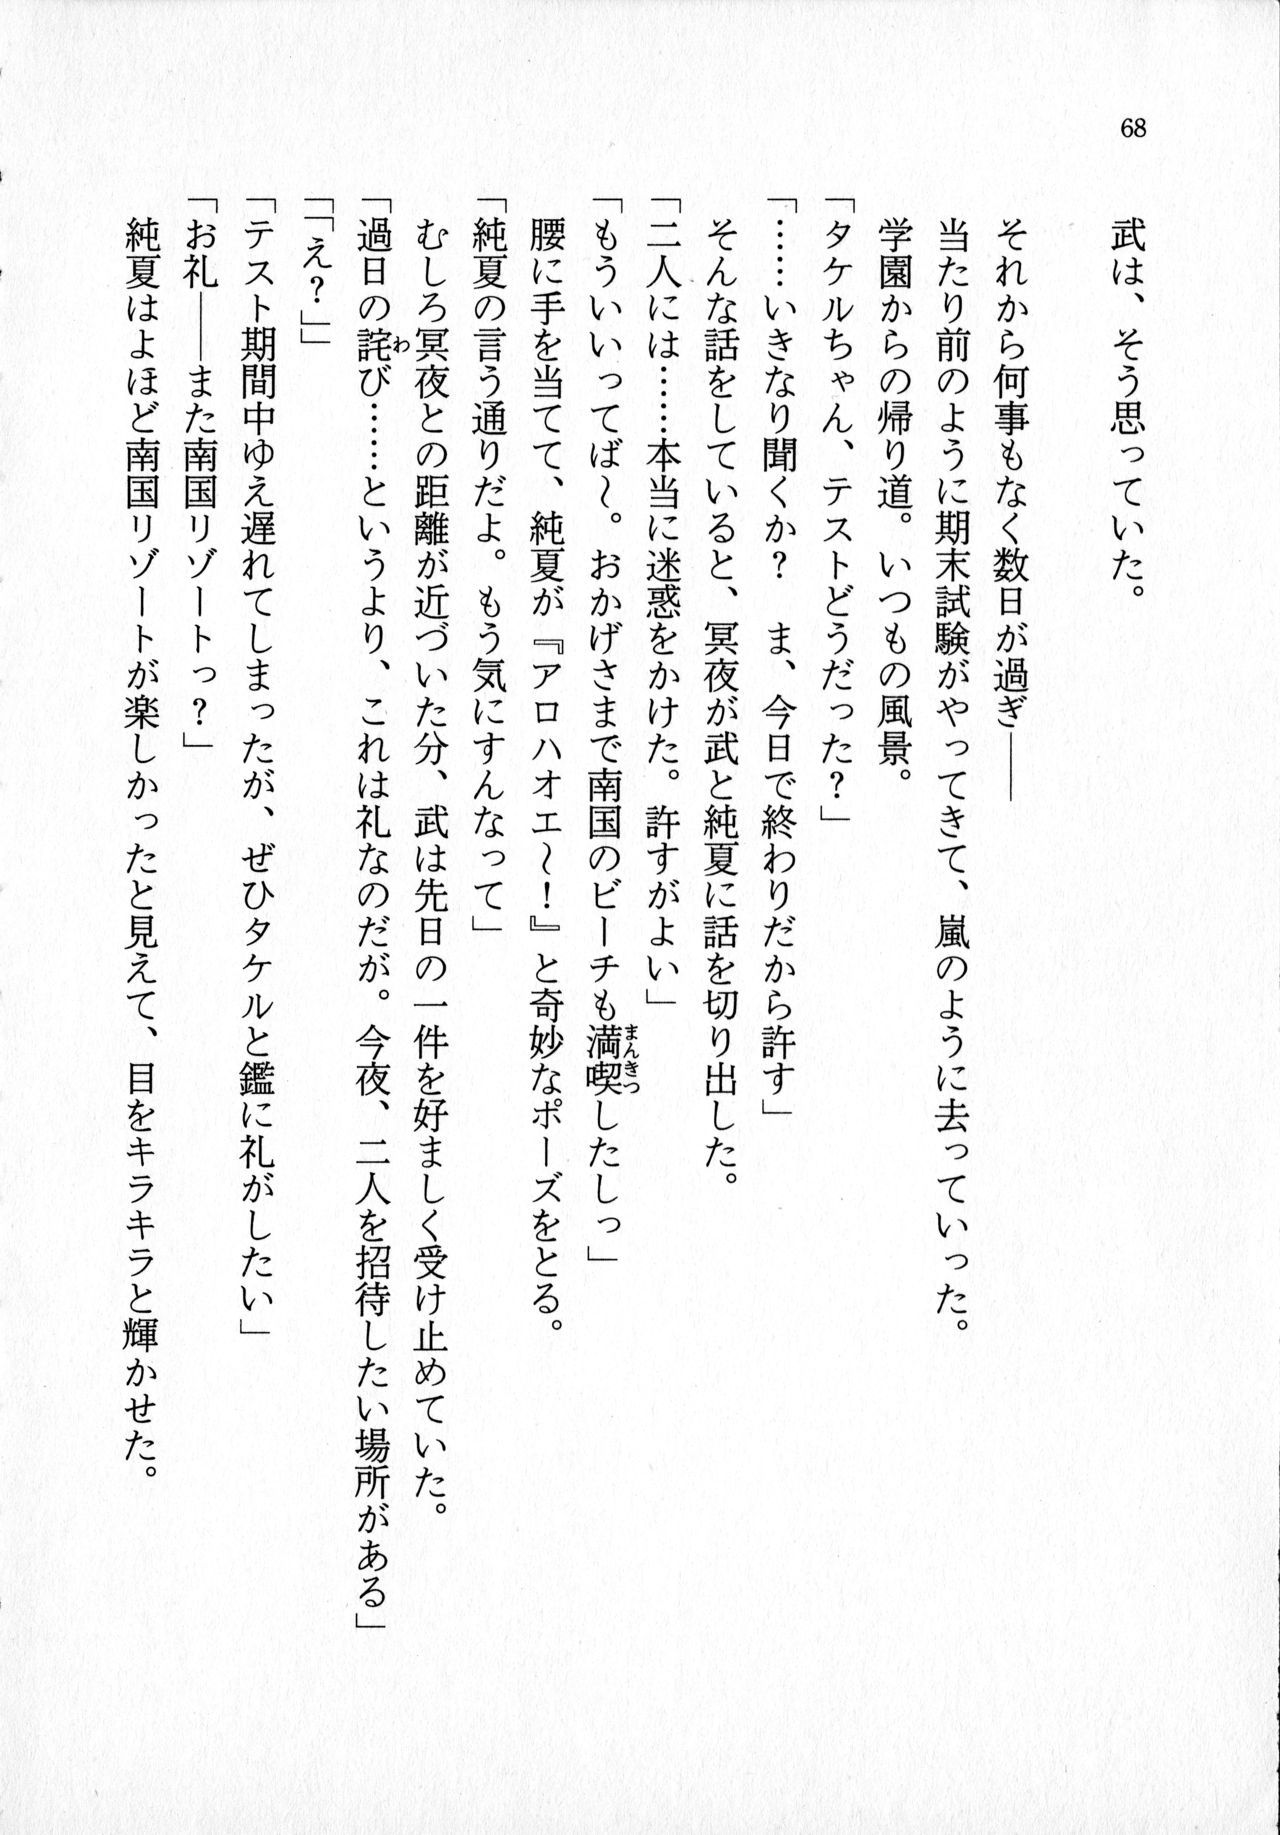 68
武は、そう思っていた。
それから何事もなく数日が過ぎ――
当たり前のように期末試験がやってきて、嵐のように去っていった。
学園からの帰り道。いつもの風景。
「タケルちゃん、テストどうだった？」
「……いきなり聞くか？　ま、今日で終わりだから許す」
そんな話をしていると、冥夜が武と純夏に話を切り出した。
「二人には……本当に迷惑をかけた。許すがよい」
「もういいってば～。おかげさまで南国のビーチも満喫したしっ」
腰に手を当てて、純夏が『アロハオエ～！』と奇妙なポーズをとる。
「純夏の言う通りだよ。もう気にすんなって」
むしろ冥夜との距離が近づいた分、武は先日の一件を好ましく受け止めていた。
「過日の詫び……というより、これは礼なのだが。今夜、二人を招待したい場所がある」
「「え？」」
「テスト期間中ゆえ遅れてしまったが、ぜひタケルと鑑に礼がしたい」
「お礼――また南国リゾートっ？」
純夏はよほど南国リゾートが楽しかったと見えて、目をキラキラと輝かせた。